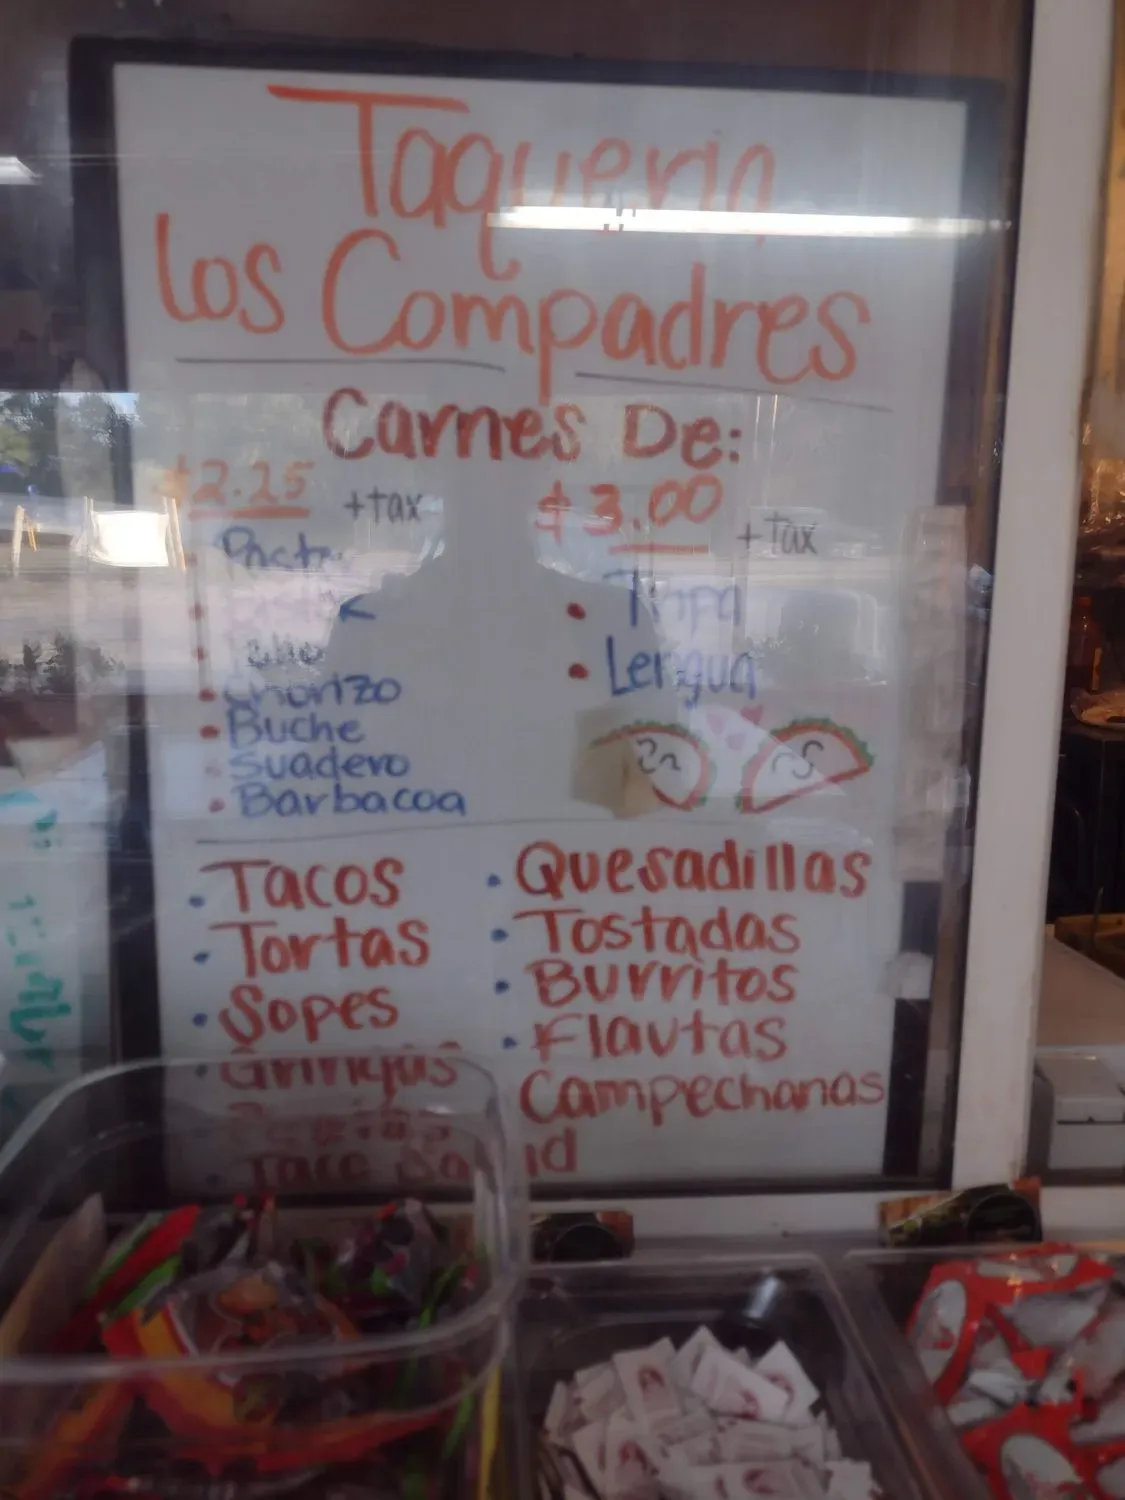 Taqueria
Los Compadres
Carnes De:
$2.25 +tax
Chorizo
Buche
Suadero
Barbacoa
$3.00 +tax
Tripa
Lengua
Tacos
Tortas
Sopes
Gringas
Taco Salad
Quesadillas
Tostadas
Burritos
Flautas
Campechanas